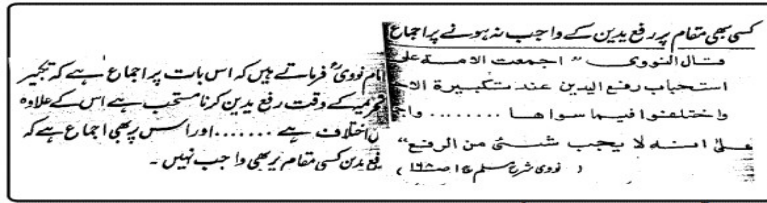 کسی بھی مقام پر رفع یدین کے واجب نہ ہونے پر اجماع
قال النووی "اجمعت الامة علی
استحباب رفع الیدین عند تکبیرة الاح
واختلفوا فیما سواها ........ واج
علی انه لا یجب شئی من الرفع"
(نووی شرح مسلم ج ۱ ص ۱۶۸)
امام نووی فرماتے ہیں کہ اس بات پر اجماع ہے کہ تکبیر
تحریمہ کے وقت رفع یدین کرنا مستحب ہے اس کے علاوہ
اختلاف ہے ....... اور اس پر بھی اجماع ہے کہ
رفع یدین کسی مقام پر بھی واجب نہیں ۔